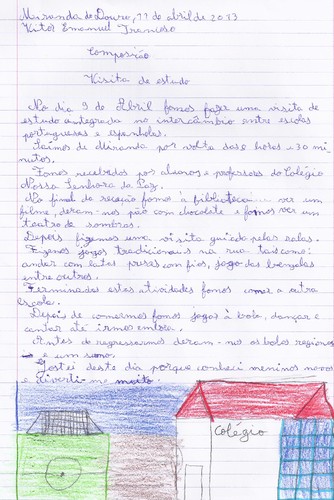 Miranda do Douro, 11 de abril de 2013
Vítor Emanuel Francoso
Composição
Visita de estudo
No dia 9 de Abril fomos fazer uma visita de
estudo integrada no intercâmbio entre escolas
portuguesas e espanholas.
Saímos de Miranda por volta das 8 horas e 30 mi
nutos.
Fomos recebidos por alunos e professores do Colégio
Nossa Senhora da Paz.
No final da receção fomos à biblioteca... ver um
filme, deram-nos pão com chocolate e fomos ver um
teatro de sombras.
Depois fizemos uma visita guiada pelas salas.
Fizemos jogos tradicionais na rua tais como:
andar com latas presas com fios, jogo das bengalas
entre outros.
Terminadas estas atividades fomos comer a outra
escola.
Depois de comermos fomos jogar à bola, dançar e
cantar até irmos embora.
Antes de regressarmos deram-nos bolos regionais
e um sumo.
Gostei deste dia porque conheci meninos novos
e diverti-me muito.
Colégio